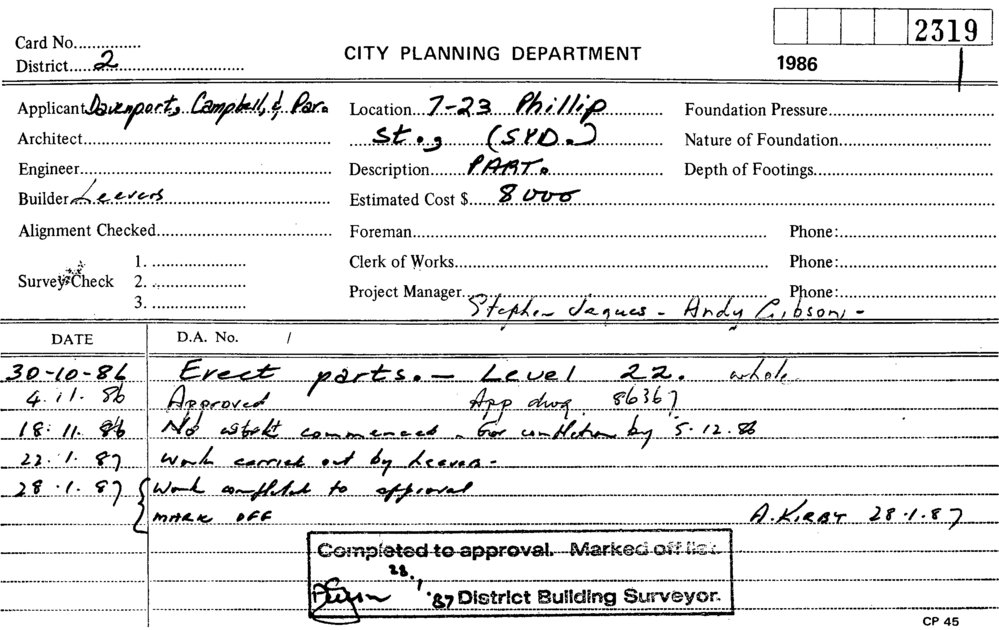 2319
Card No.
District 2
CITY PLANNING DEPARTMENT
1986
Applicant Davenport, Campbell, & Par.
Location 7-23 Phillip
Foundation Pressure
Architect
St., (SYD.)
Nature of Foundation
Engineer
Description PART.
Depth of Footings
Builder Leevers
Estimated Cost $ 8000
Alignment Checked
Foreman
Phone:
Survey Check
1.
2.
3.
Clerk of Works
Phone:
Project Manager Stephen Jaques - Andy Gibson -
Phone:
DATE
D.A. No. /
30-10-86 Erect parts. - Level 22. whole
4.11.86 Approved App dwg 86367
18.11.86 No work commenced - For completion by 5.12.86
22.1.87 Work carried out by Leevers -
28.1.87 Work completed to approval
MARK OFF A. KIRBY 28.1.87
Completed to approval. Marked off list.
28.1.'87 District Building Surveyor.
CP 45